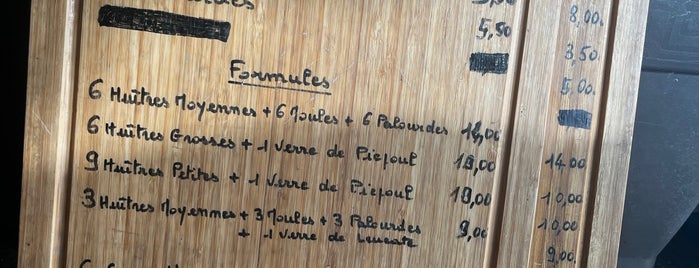 5,50
8,00.
3,50
5,00.
Formules
6 Huîtres Moyennes + 6 Moules + 6 Palourdes 14,00
6 Huîtres Grosses + 1 Verre de Picpoul 10,00
9 Huîtres Petites + 1 Verre de Picpoul 10,00
3 Huîtres Moyennes + 3 Moules + 3 Palourdes
+ 1 Verre de Leucate 9,00
14,00
10,00
10,00
9,00.